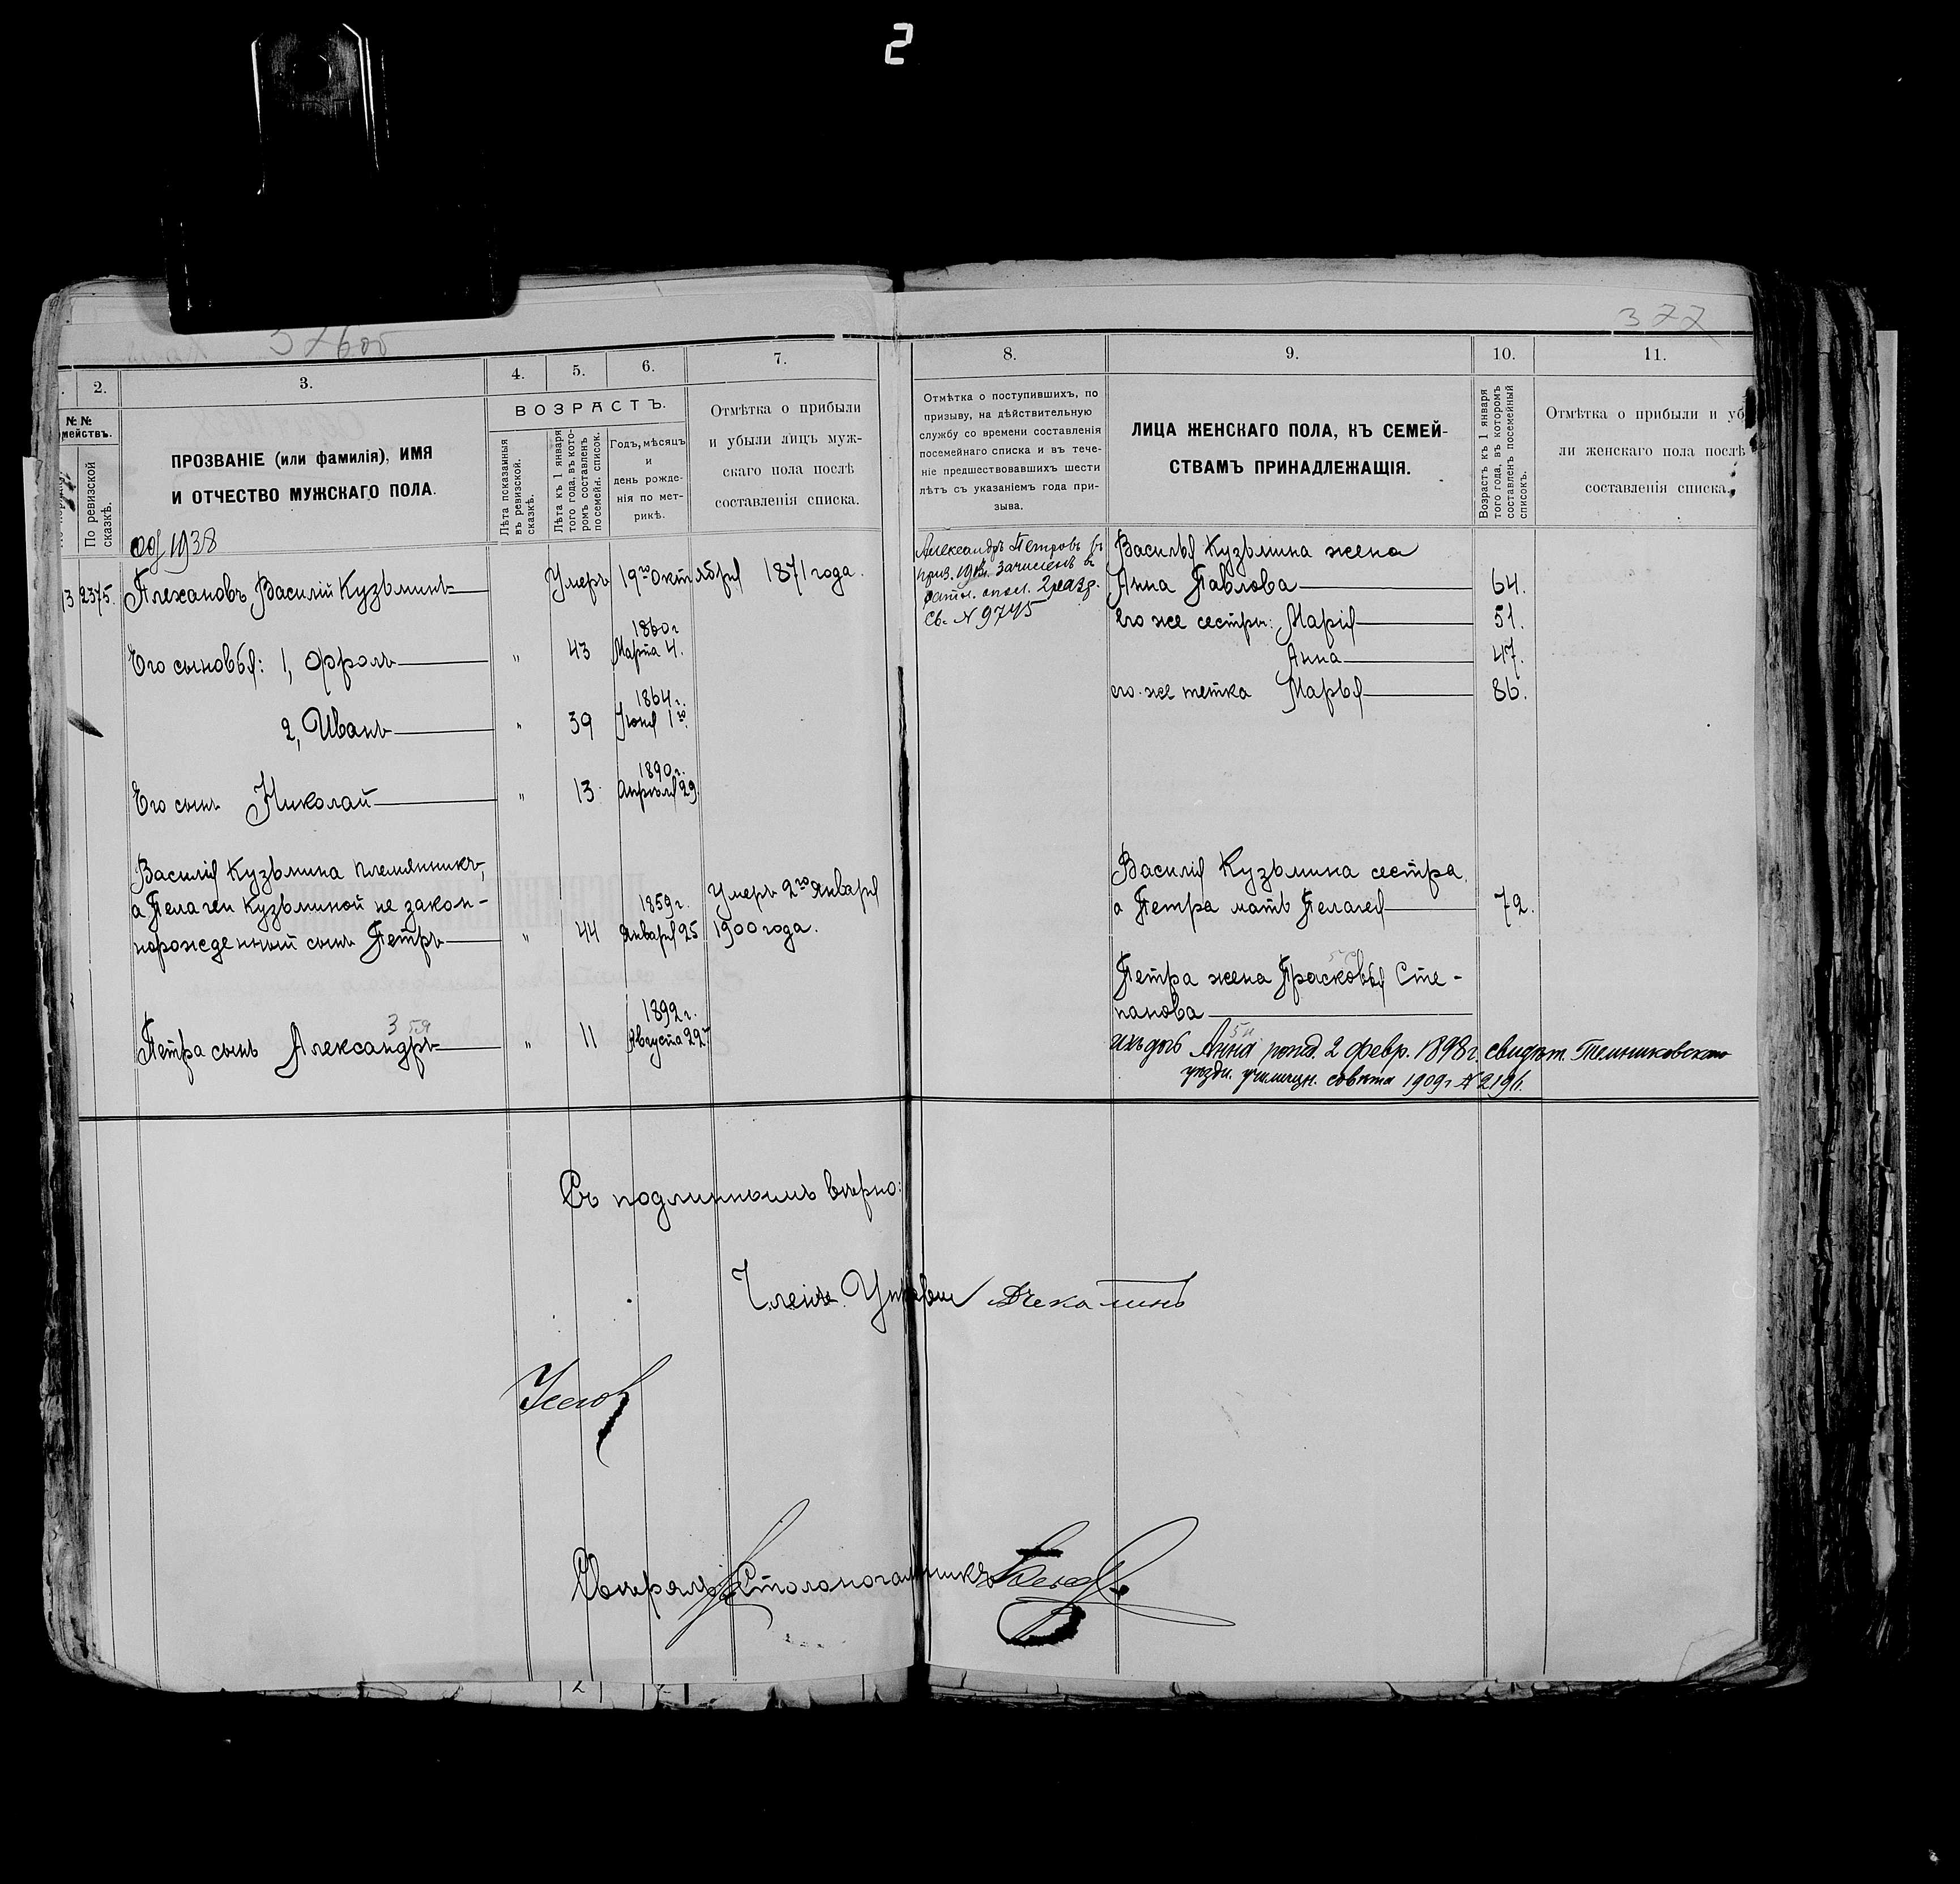 2
376об
377
2.
3.
4.
5.
6.
7.
8.
9.
10.
11.
№ №
мействъ.
По ревизской
сказкѣ.
ПРОЗВАНІЕ (или фамилія), ИМЯ
И ОТЧЕСТВО МУЖСКАГО ПОЛА.
ВОЗРАСТЪ.
Лѣта показанныя
въ ревизской.
сказкѣ.
Лѣта къ 1 января
того года, въ кото-
ромъ составленъ
посемейн. список.
Годъ, мѣсяцъ
и
день рожде-
нія по мет-
рикѣ.
Отмѣтка о прибыли
и убыли лицъ муж-
скаго пола послѣ
составленія списка.
Отмѣтка о поступившихъ, по
призыву, на дѣйствительную
службу со времени составленія
посемейнаго списка и въ тече-
ніе предшествовавшихъ шести
лѣтъ съ указаніемъ года при-
зыва.
ЛИЦА ЖЕНСКАГО ПОЛА, КЪ СЕМЕЙ-
СТВАМЪ ПРИНАДЛЕЖАЩІЯ.
Возрастъ къ 1 января
того года, въ которомъ
составленъ посемейный
списокъ.
Отмѣтка о прибыли и уб
ли женскаго пола послѣ
составленія списка.
1938
3 2375. Плехановъ Василій Кузьминъ Умеръ 19го Октября 1871 года.
Его сыновья: 1, Фролъ " 43 1860 г. Марта 4.
2, Иванъ " 39 1864 г. Іюня 1го.
Его сынъ Николай " 13 1890 г. Апрѣля 29.
Василія Кузьмина племянникъ,
а Пелагеи Кузьминой не закон-
норожденный сынъ Петръ " 44 1859 г. Января 25 Умеръ 2го Января
1900 года.
Петра сынъ Александръ " 11 1892 г. Августа 22
Александръ Петровъ въ
приз. зачисленъ въ
ратн. опол. 2 разр.
св. № 9745
Василья Кузьмина жена
Анна Павлова 64.
Его же сестры: Марія 51.
Анна 47.
его же тетка Марья 86.
Василія Кузьмина сестра,
а Петра мать Пелагея 72.
Петра жена Прасковья Сте-
панова
ихъ дочь Анна рожд. 2 февр. 1898 г. свидѣт. Темниковскаго
уѣздн. училищн. совѣта 1909 г. № 2196.
Съ подлиннымъ вѣрно:
Членъ Управы Чекалинъ
Свѣрялъ Столоначальникъ